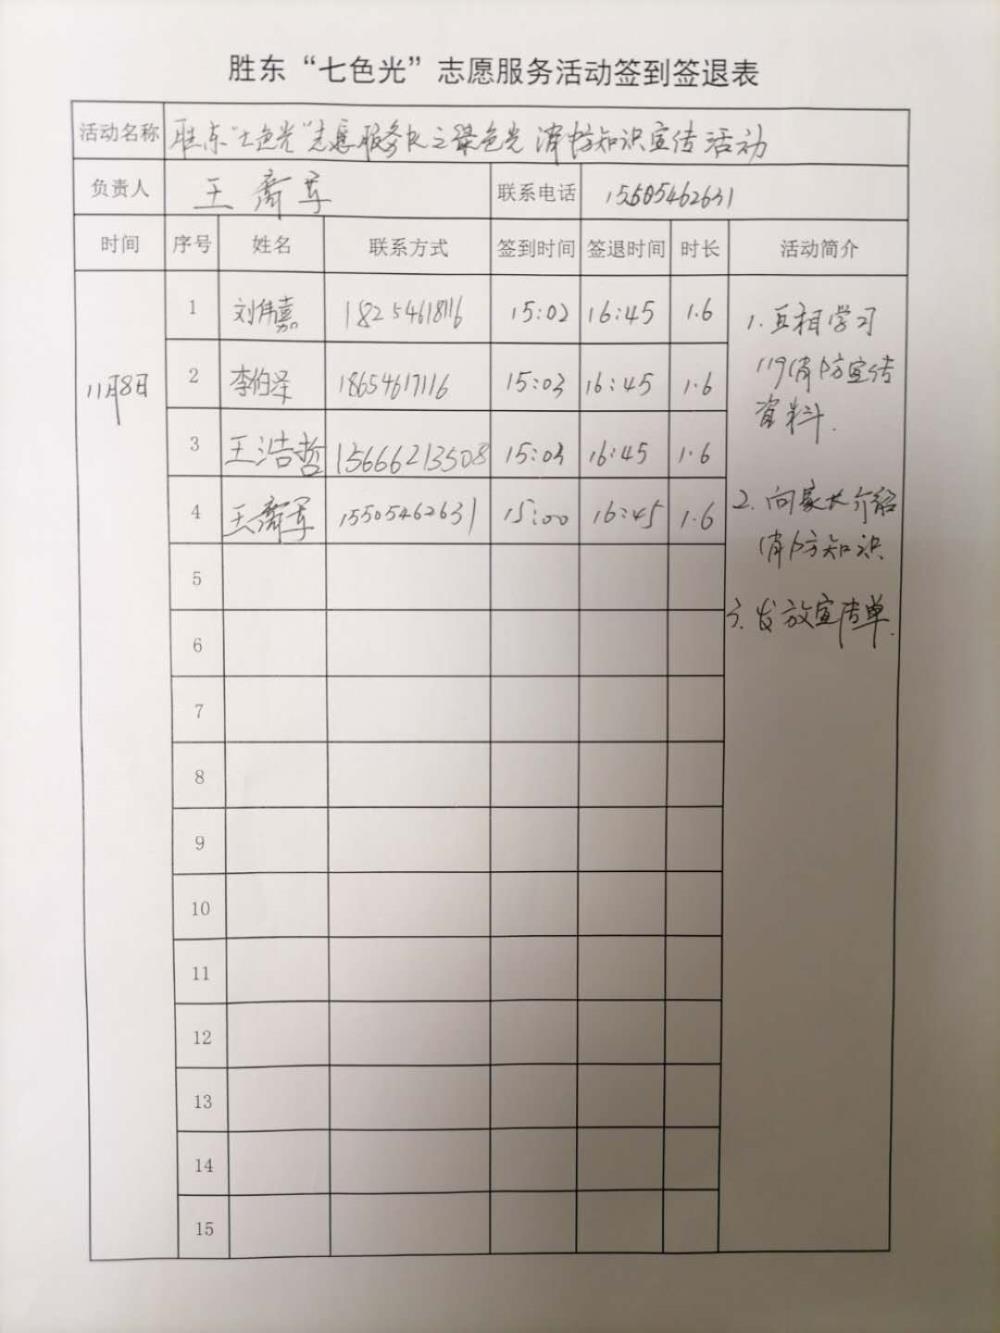 胜东“七色光”志愿服务活动签到签退表
活动名称 胜东“七色光”志愿服务队之绿色光 消防知识宣传活动
负责人 王 齐军 联系电话 15505462631
时间 序号 姓名 联系方式 签到时间 签退时间 时长 活动简介
11月8日
1 刘伟嘉 18254618116 15:02 16:45 1.6
2 李伯泽 18654617116 15:03 16:45 1.6
3 王浩哲 15666213508 15:03 16:45 1.6
4 王齐军 15505462631 15:00 16:45 1.6
5
6
7
8
9
10
11
12
13
14
15
1. 互相学习
119消防宣传
资料.
2. 向家长介绍
消防知识
3. 发放宣传单.